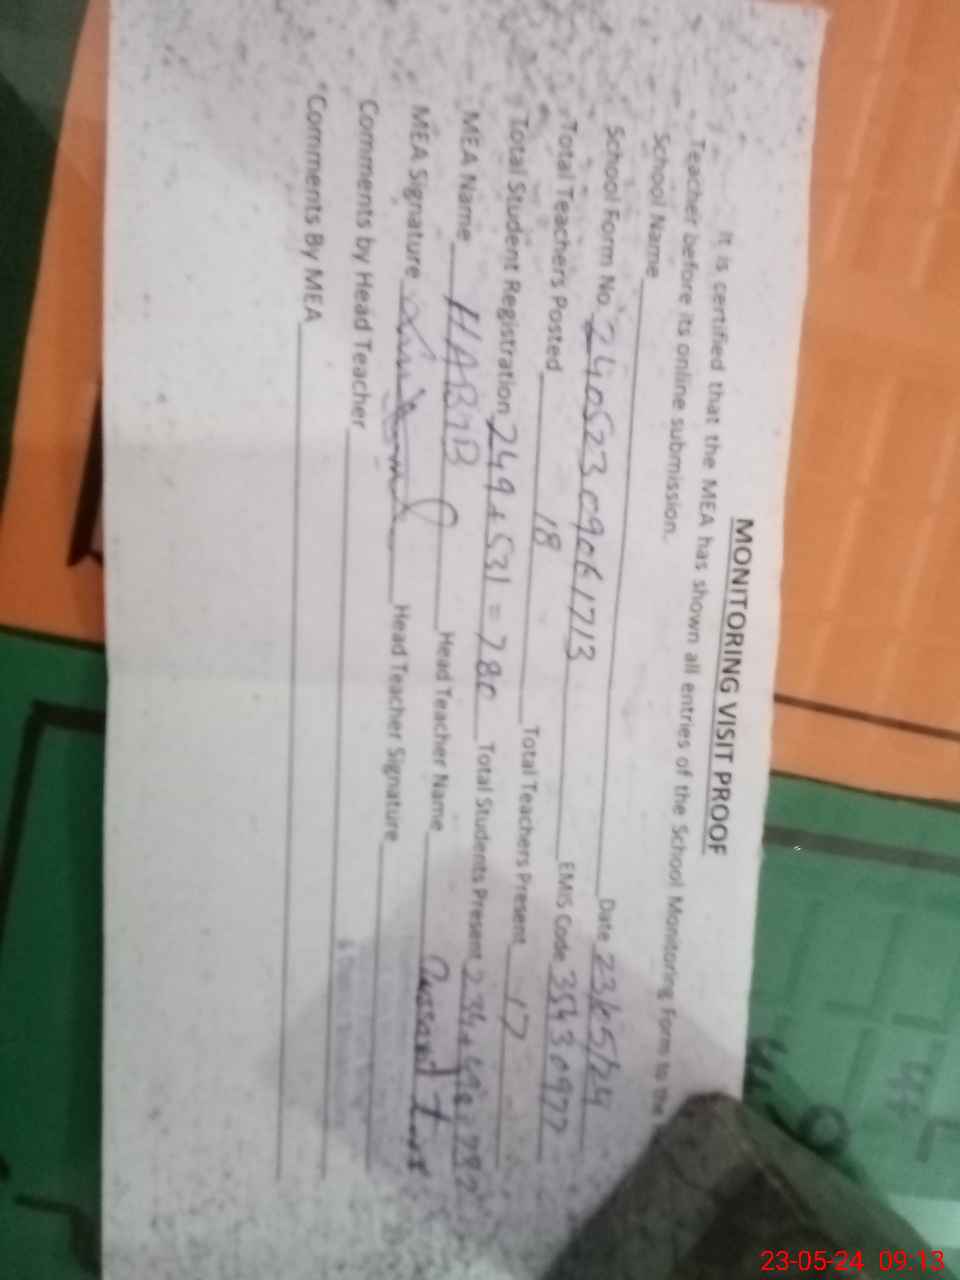 MONITORING VISIT PROOF
It is certified that the MEA has shown all entries of the School Monitoring Form to the
Teacher before its online submission.
School Name
School Form No. 24052309061713 Date 23/05/24
Total Teachers Posted 18 EMIS Code 35430977
Total Student Registration 249+531=780 Total Teachers Present 17
MEA Name HABIB Total Students Present
MEA Signature Head Teacher Name
Comments by Head Teacher Head Teacher Signature
*Comments By MEA
23-05-24 09:13